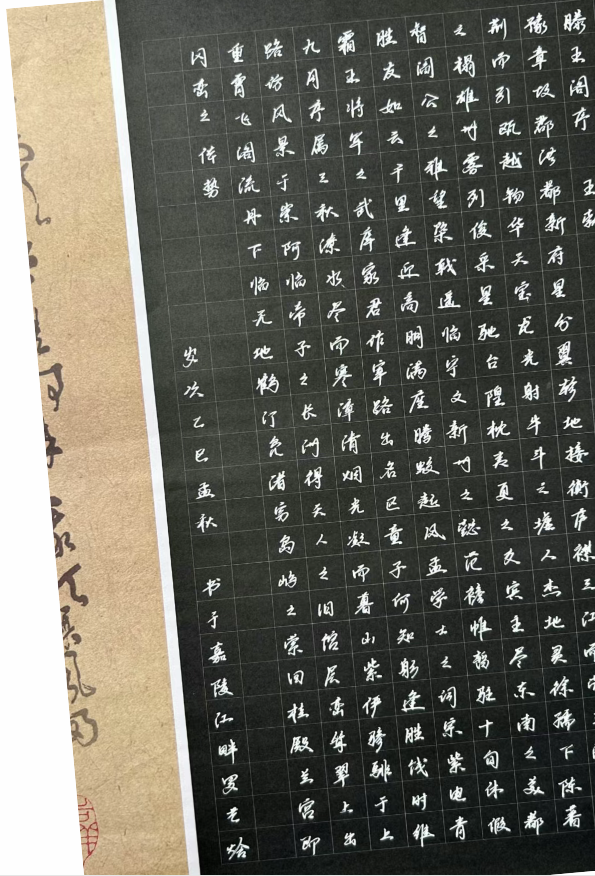 滕王阁序 王勃
豫章故郡洪都新府星分翼轸地接衡庐襟三江而
荆而引瓯越物华天宝龙光射牛斗之墟人杰地灵徐孺下陈蕃
之榻雄州雾列俊采星驰台隍枕夷夏之交宾主尽东南之美都
督阎公之雅望棨戟遥临宇文新州之懿范襜帷暂驻十旬休假
胜友如云千里逢迎高朋满座腾蛟起凤孟学士之词宗紫电青
霜王将军之武库家君作宰路出名区童子何知躬逢胜饯时维
九月序属三秋潦水尽而寒潭清烟光凝而暮山紫俨骖騑于上
路访风景于崇阿临帝子之长洲得天人之旧馆层峦耸翠上出
重霄飞阁流丹下临无地鹤汀凫渚穷岛屿之萦回桂殿兰宫即
冈峦之体势
岁次乙巳孟秋 书于嘉陵江畔罗艺